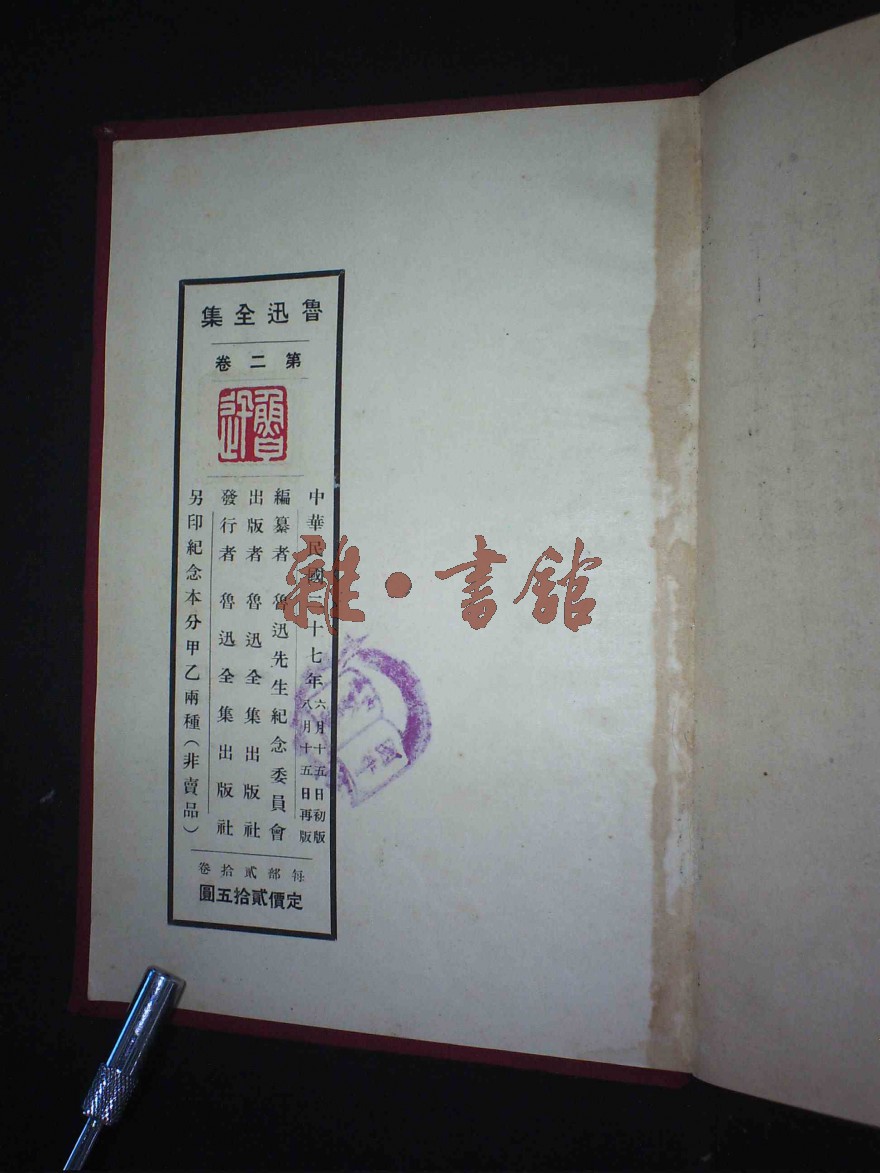 魯迅全集
第二卷
魯迅
中華民國二十七年六月十五日初版
八月十五日再版
編纂者 魯迅先生紀念委員會
出版者 魯迅全集出版社
發行者 魯迅全集出版社
另印紀念本分甲乙兩種(非賣品)
每部貳拾卷
定價貳拾五圓
雜·書館